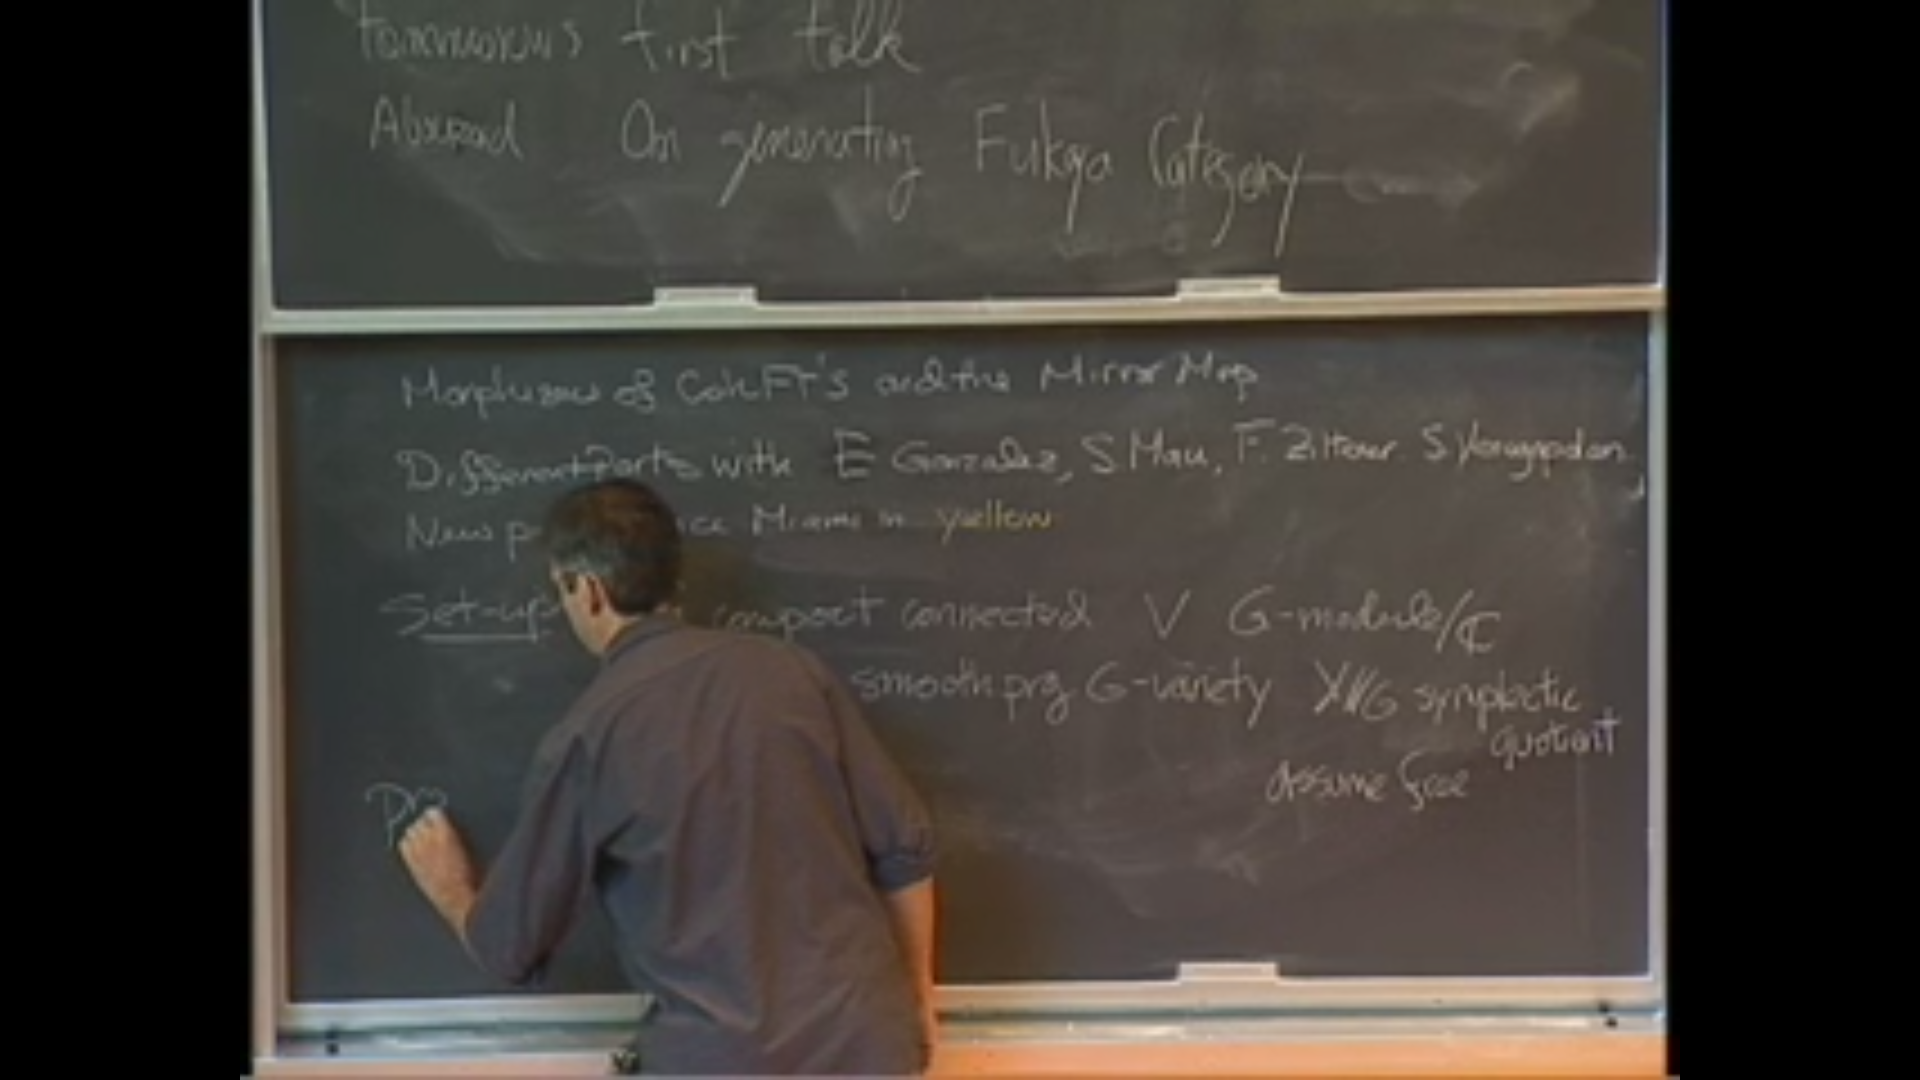 Tommorows first talk
Abouzaid On generating Fukaya Category
Morphisms of CohFT's and the Mirror Map
Different Parts with E Gonzalez, S. Mau, F. Ziltener S. Venugopalan,
New Miami in yellow
Set-up compact connected V G-module/ℂ
smooth proj G-variety X//G symplectic
quotient
assume free